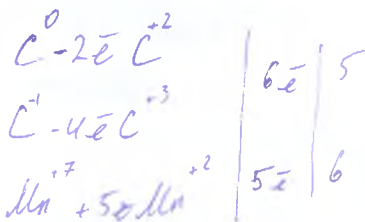 C⁰ - 2ē C⁺²
C⁻¹ - 4ē C⁺³ | 6ē | 5
Mn⁺⁷ + 5ē Mn⁺² | 5ē | 6